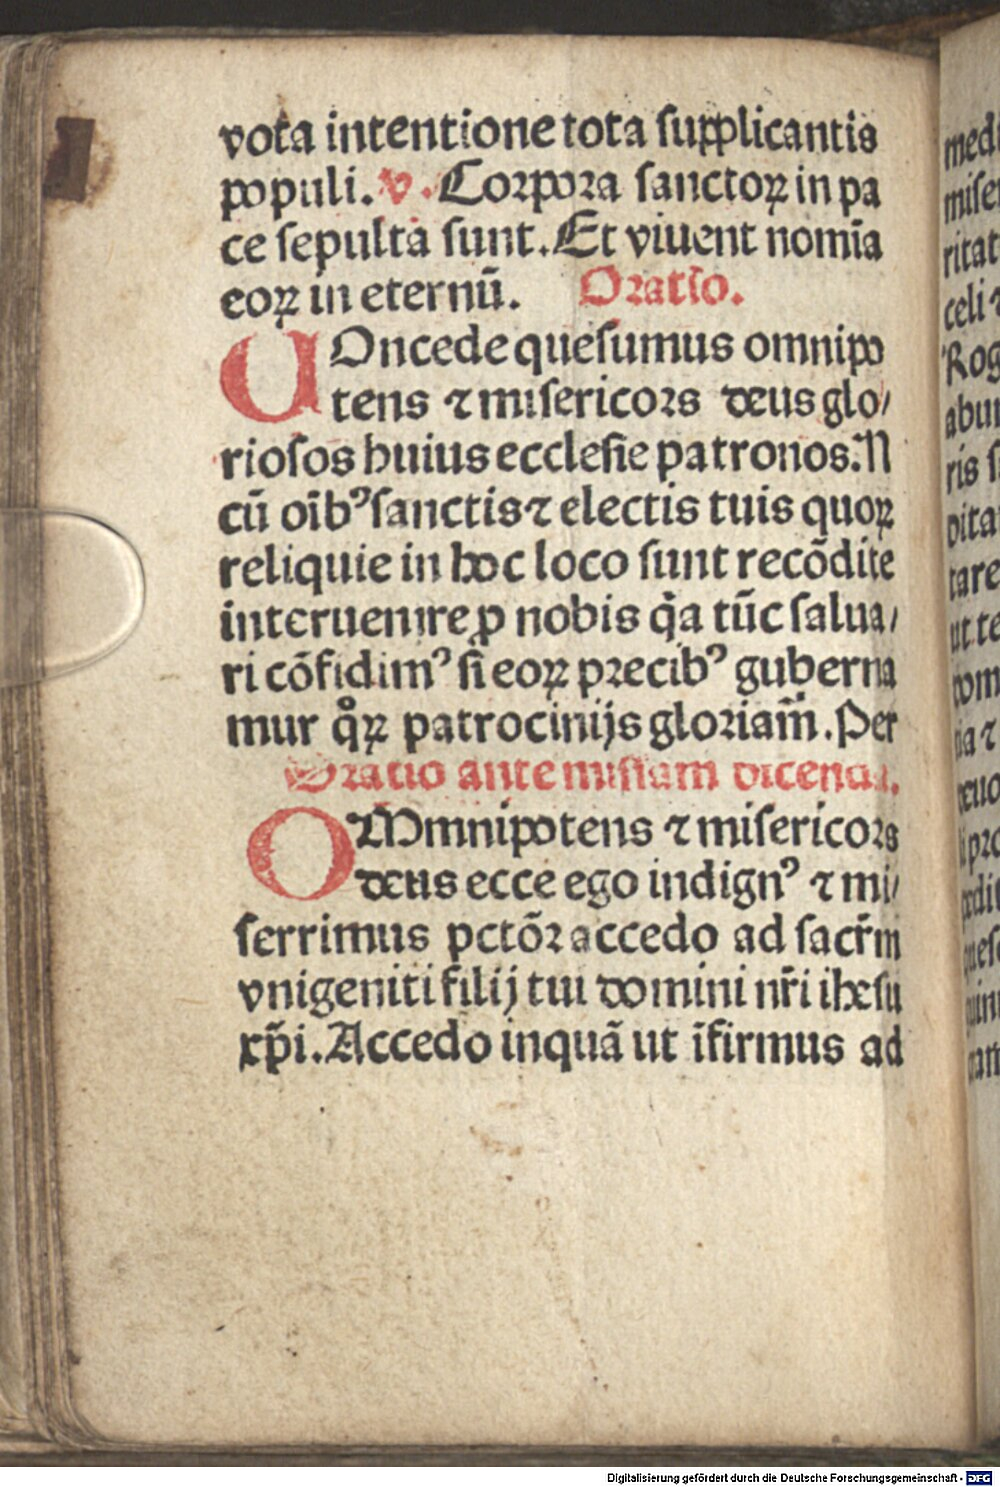 vota intentione tota ſupplicantis
populi. v. Corpora ſanctoꝝ in pa
ce ſepulta ſunt. Et viuent nomīa
eoꝝ in eternū. Oratio.
UOncede queſumus omnipo
tens ⁊ miſericoꝛs deus glo/
rioſos huius eccleſie patronos. N
cū oībꝰ ſanctis ⁊ electis tuis quoꝝ
reliquie in hoc loco ſunt recōdite
interuenire ꝓ nobis qͣa tūc ſalua/
ri cōfidimꝰ ſi eoꝝ pꝛecibꝰ guberna
mur qͦꝝ patrocinijs gloꝛiam̄. Per
Oꝛatio ante miſſam dicenda.
OMmnipotens ⁊ miſericoꝛs
deus ecce ego indignꝰ ⁊ mi/
ſerrimus pctōꝛ accedo ad ſacr̄m
vnigeniti filij tui domini nr̄i iheſu
xp̄i. Accedo inquā ut īfirmus ad
Digitalisierung gefördert durch die Deutsche Forschungsgemeinschaft - DFG